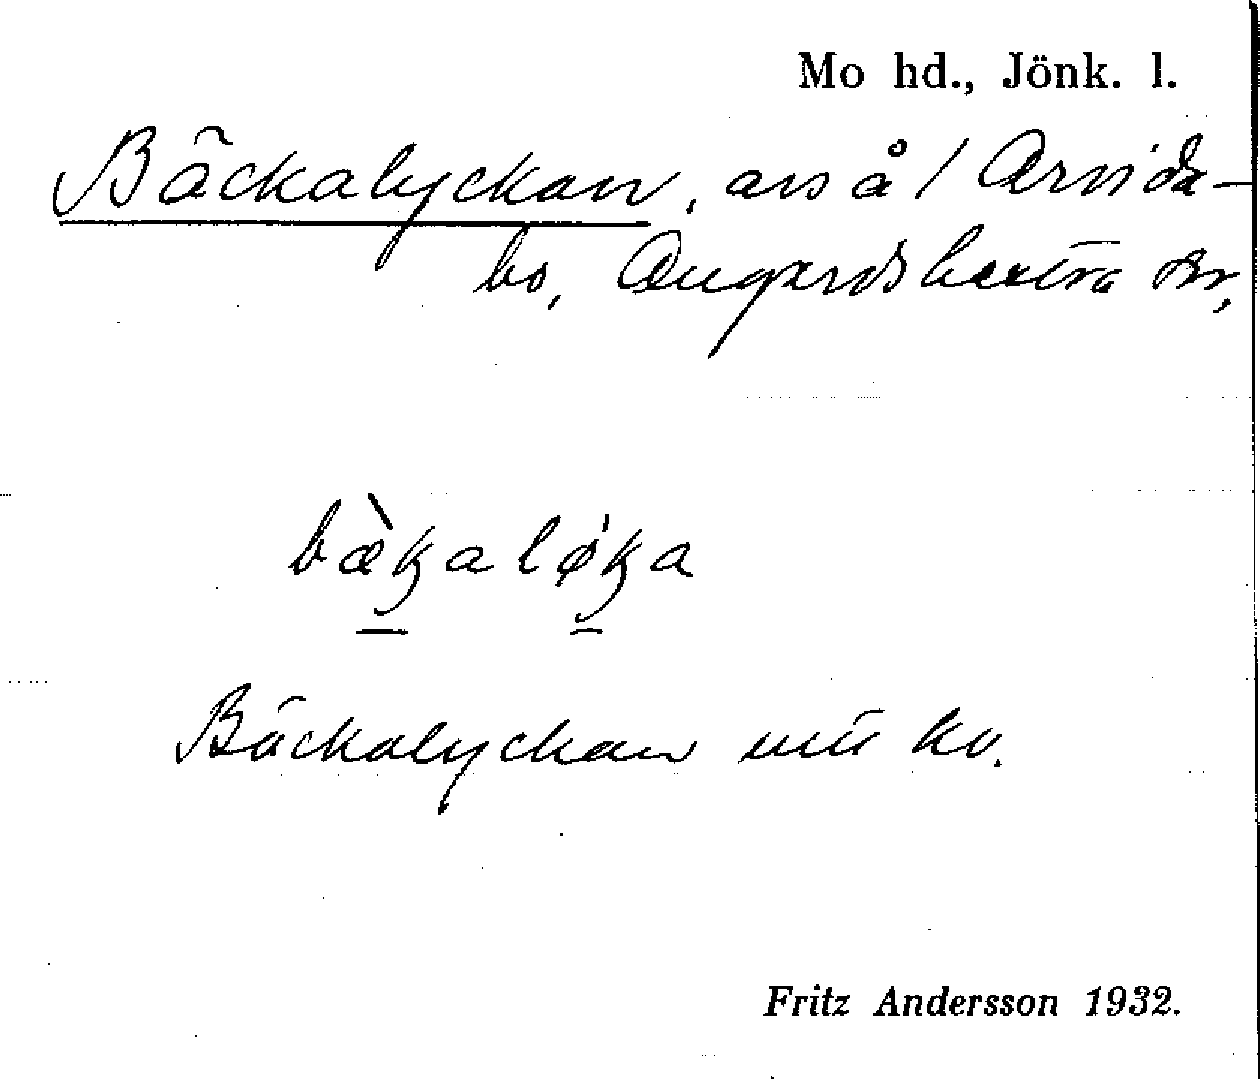 Mo hd., Jönk. l.
Bäckalyckan, avs å / Arvida-
bo, Angerdshestra sn,
bæ̀kaløka
Bäckalyckan utu kv.
Fritz Andersson 1932.